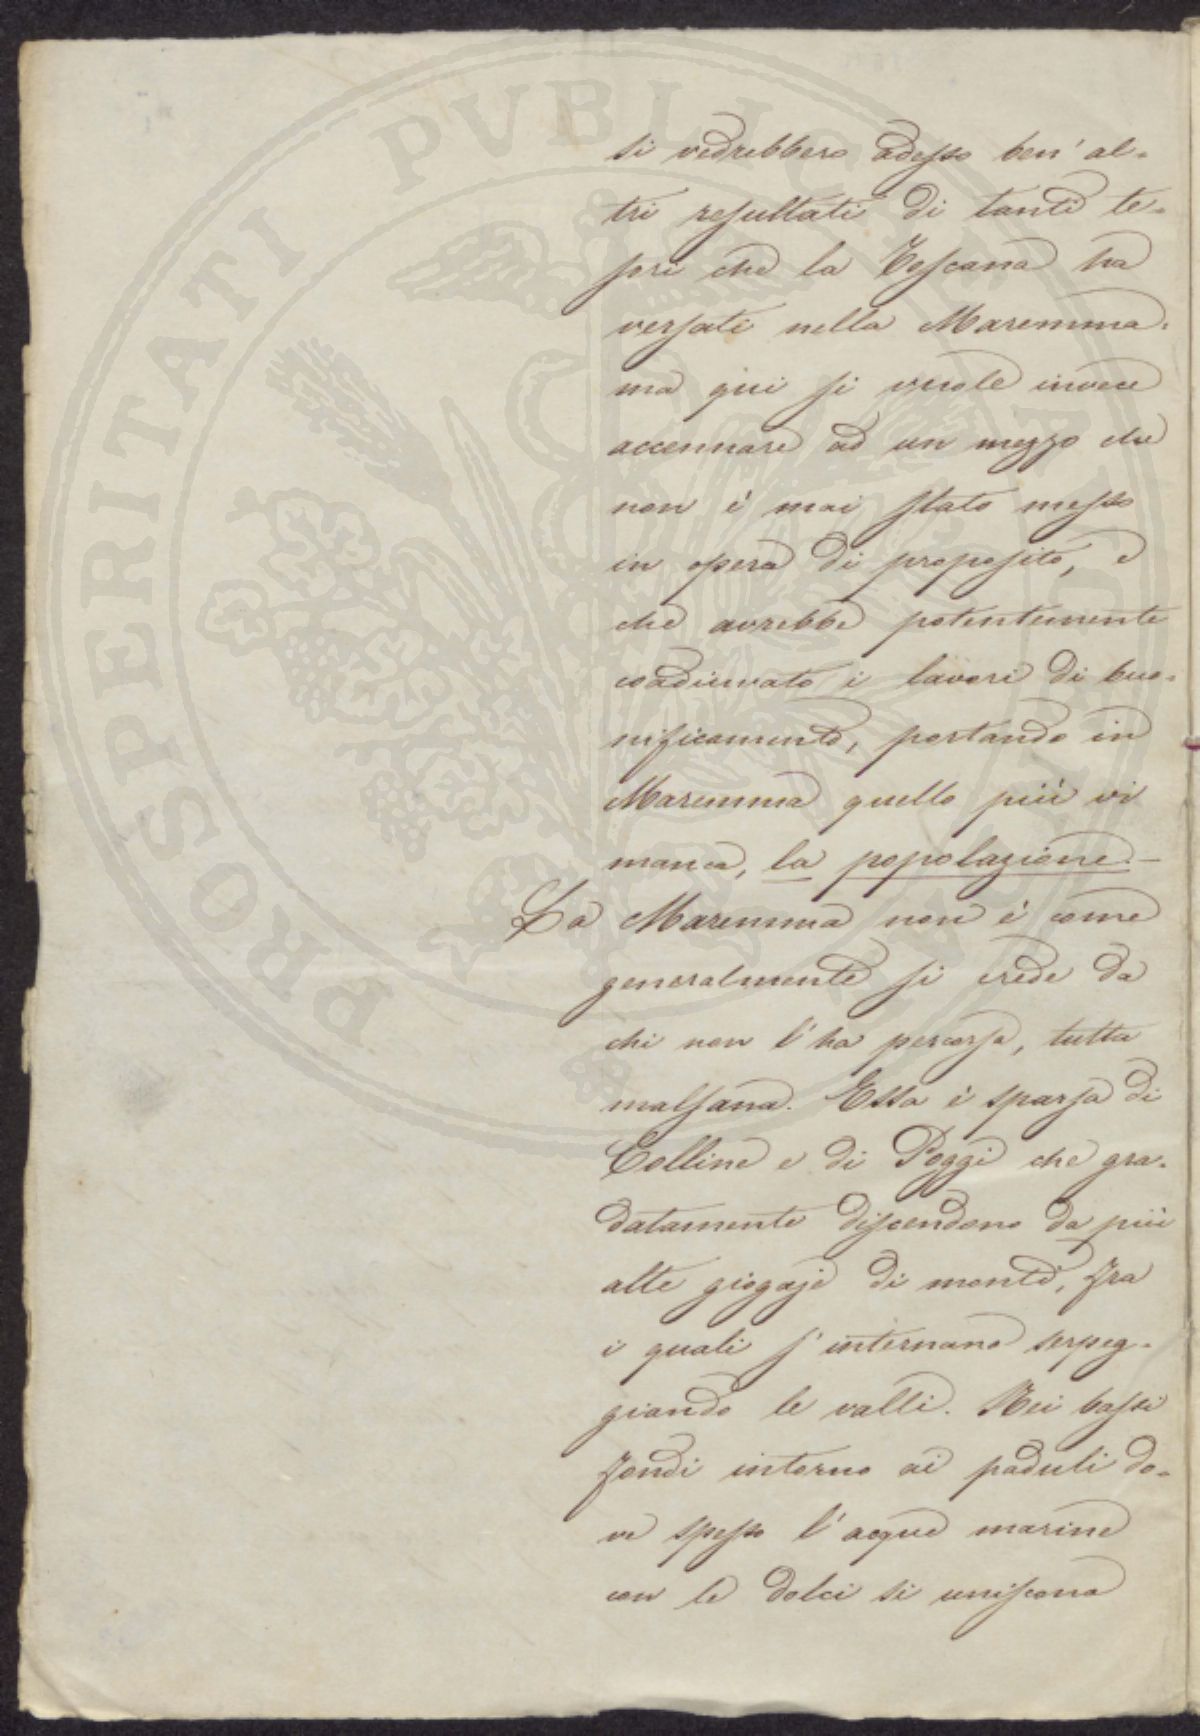 si vedrebbero adesso ben' al=
tri resultati di tanti te=
sori che la Toscana ha
versati nella Maremma:
ma qui si vuole invece
accennare ad un mezzo che
non è mai stato messo
in opera di proposito, e
che avrebbe potentemente
coadiuvato i lavori di buo=
nificamento, portando in
Maremma quello più vi
manca, la popolazione.—
La Maremma non è come
generalmente si crede da
chi non l'ha percorsa, tutta
malsana. Essa è sparsa di
Colline e di Poggi che gra=
datamente discendono da più
alte giogaje di monti, fra
i quali s'internano serpeg=
giando le valli. Nei bassi
fondi intorno ai paduli do=
ve spesso l'acque marine
con le dolci si uniscono
PROSPERITATI PVBLICAE AVGENDAE